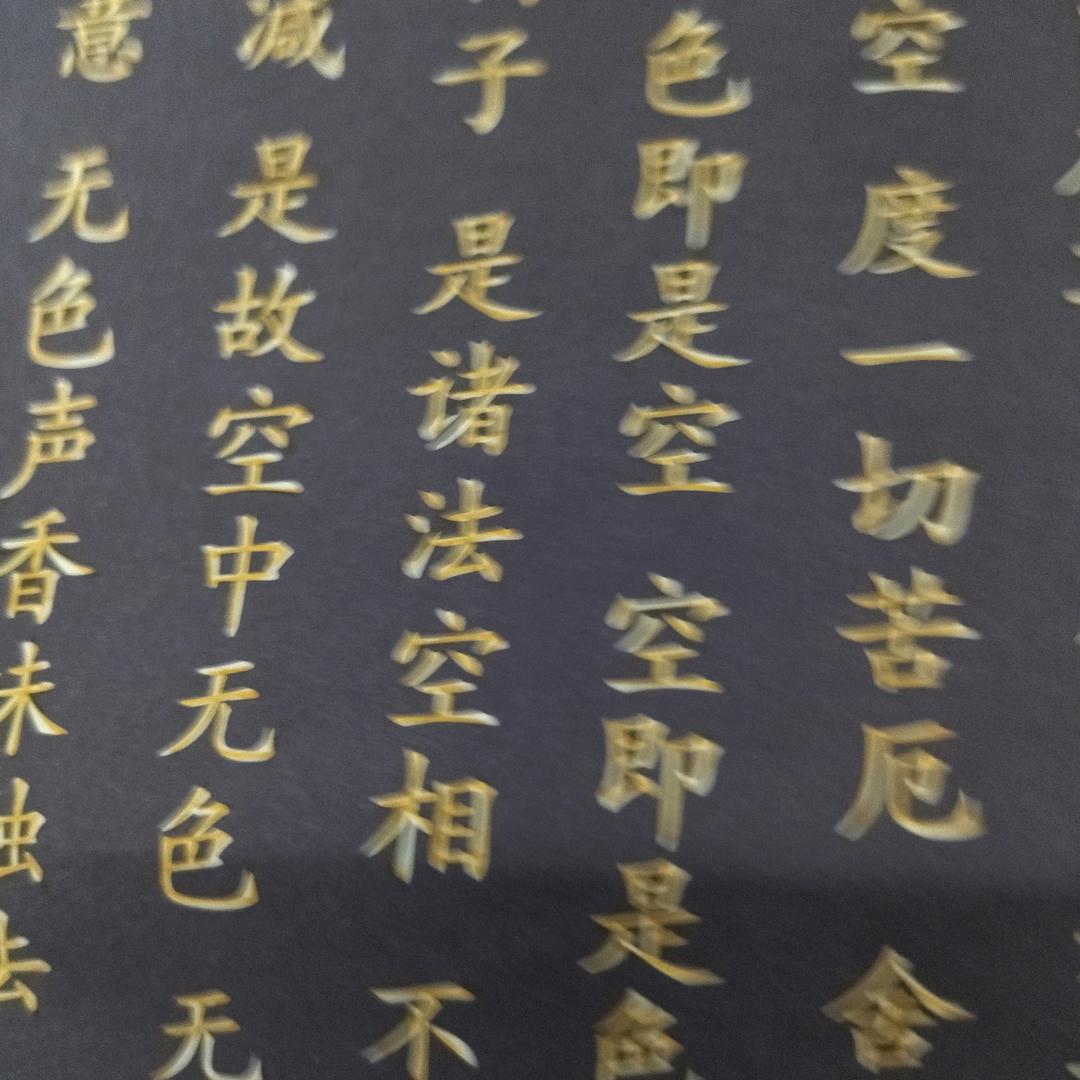 空 度一切苦厄 舍
色即是空 空即是色
子 是诸法空相 不
减 是故空中无色 无
意 无色声香味触法